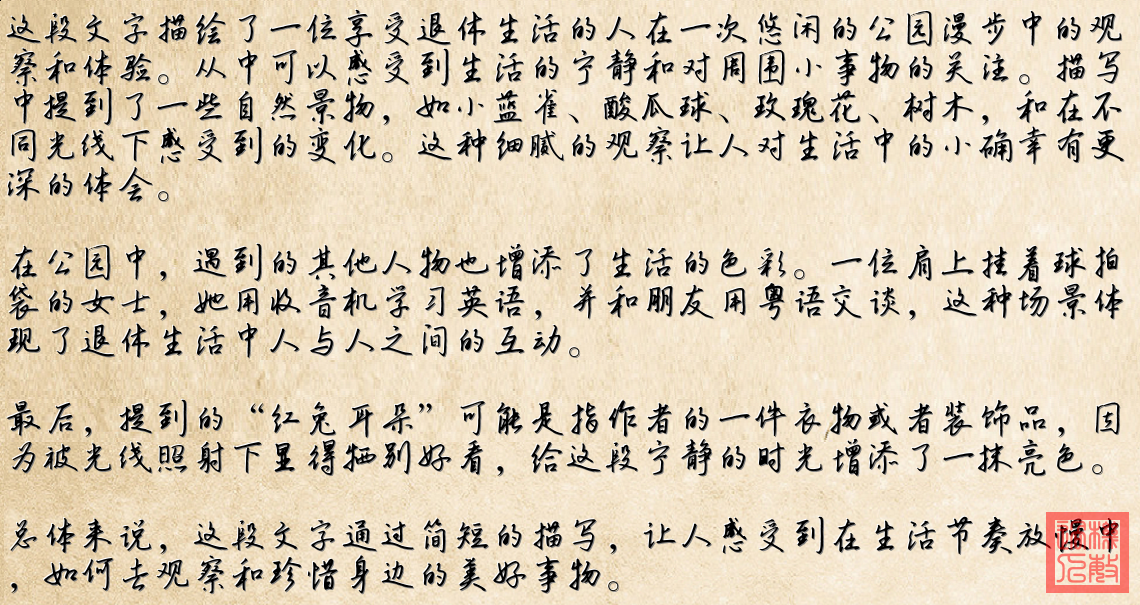 这段文字描绘了一位享受退休生活的人在一次悠闲的公园漫步中的观
察和体验。从中可以感受到生活的宁静和对周围小事物的关注。描写
中提到了一些自然景物，如小蓝雀、酸瓜球、玫瑰花、树木，和在不
同光线下感受到的变化。这种细腻的观察让人对生活中的小确幸有更
深的体会。
在公园中，遇到的其他人物也增添了生活的色彩。一位肩上挂着球拍
袋的女士，她用收音机学习英语，并和朋友用粤语交谈，这种场景体
现了退休生活中人与人之间的互动。
最后，提到的“红兔耳朵”可能是指作者的一件衣物或者装饰品，因
为被光线照射下显得特别好看，给这段宁静的时光增添了一抹亮色。
总体来说，这段文字通过简短的描写，让人感受到在生活节奏放慢中
，如何去观察和珍惜身边的美好事物。